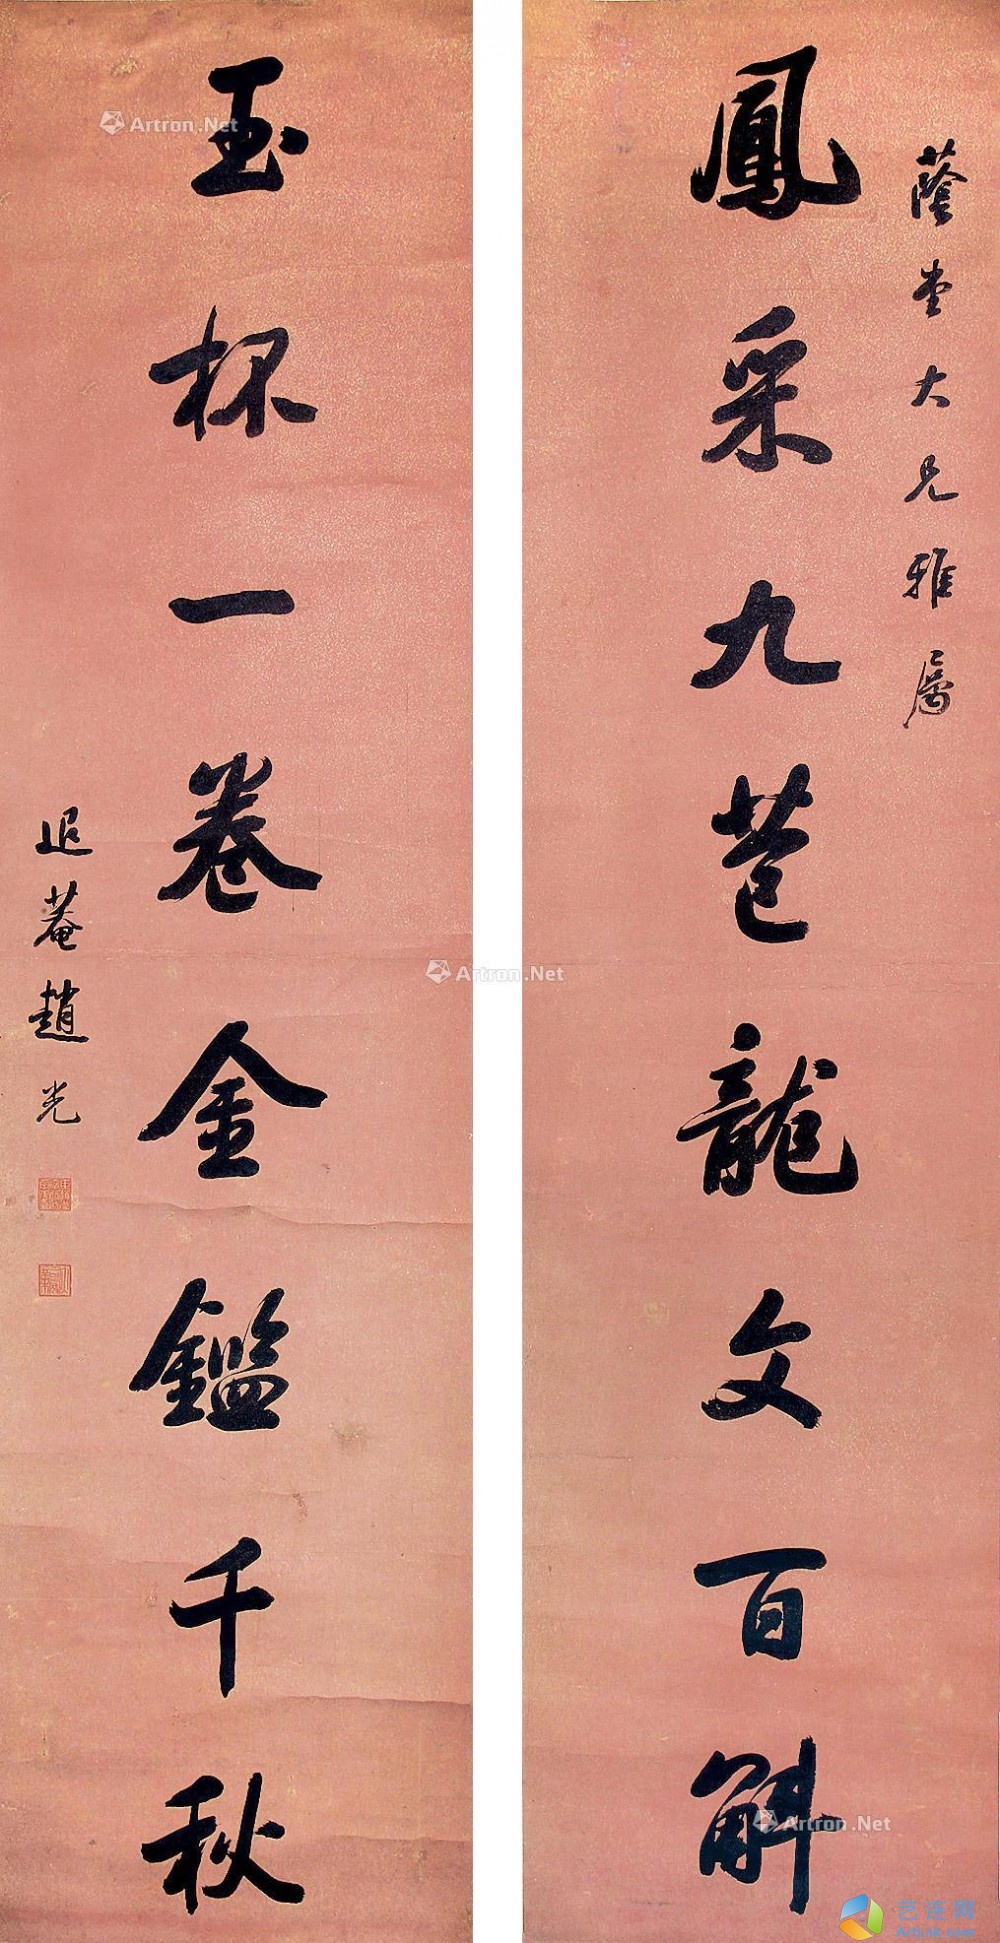 蔭堂大兄雅屬
鳳采九苞龍文百斛
玉杯一卷金鑑千秋
退菴趙光
Artron.Net
Artron.Net
Artron.Net
艺连网